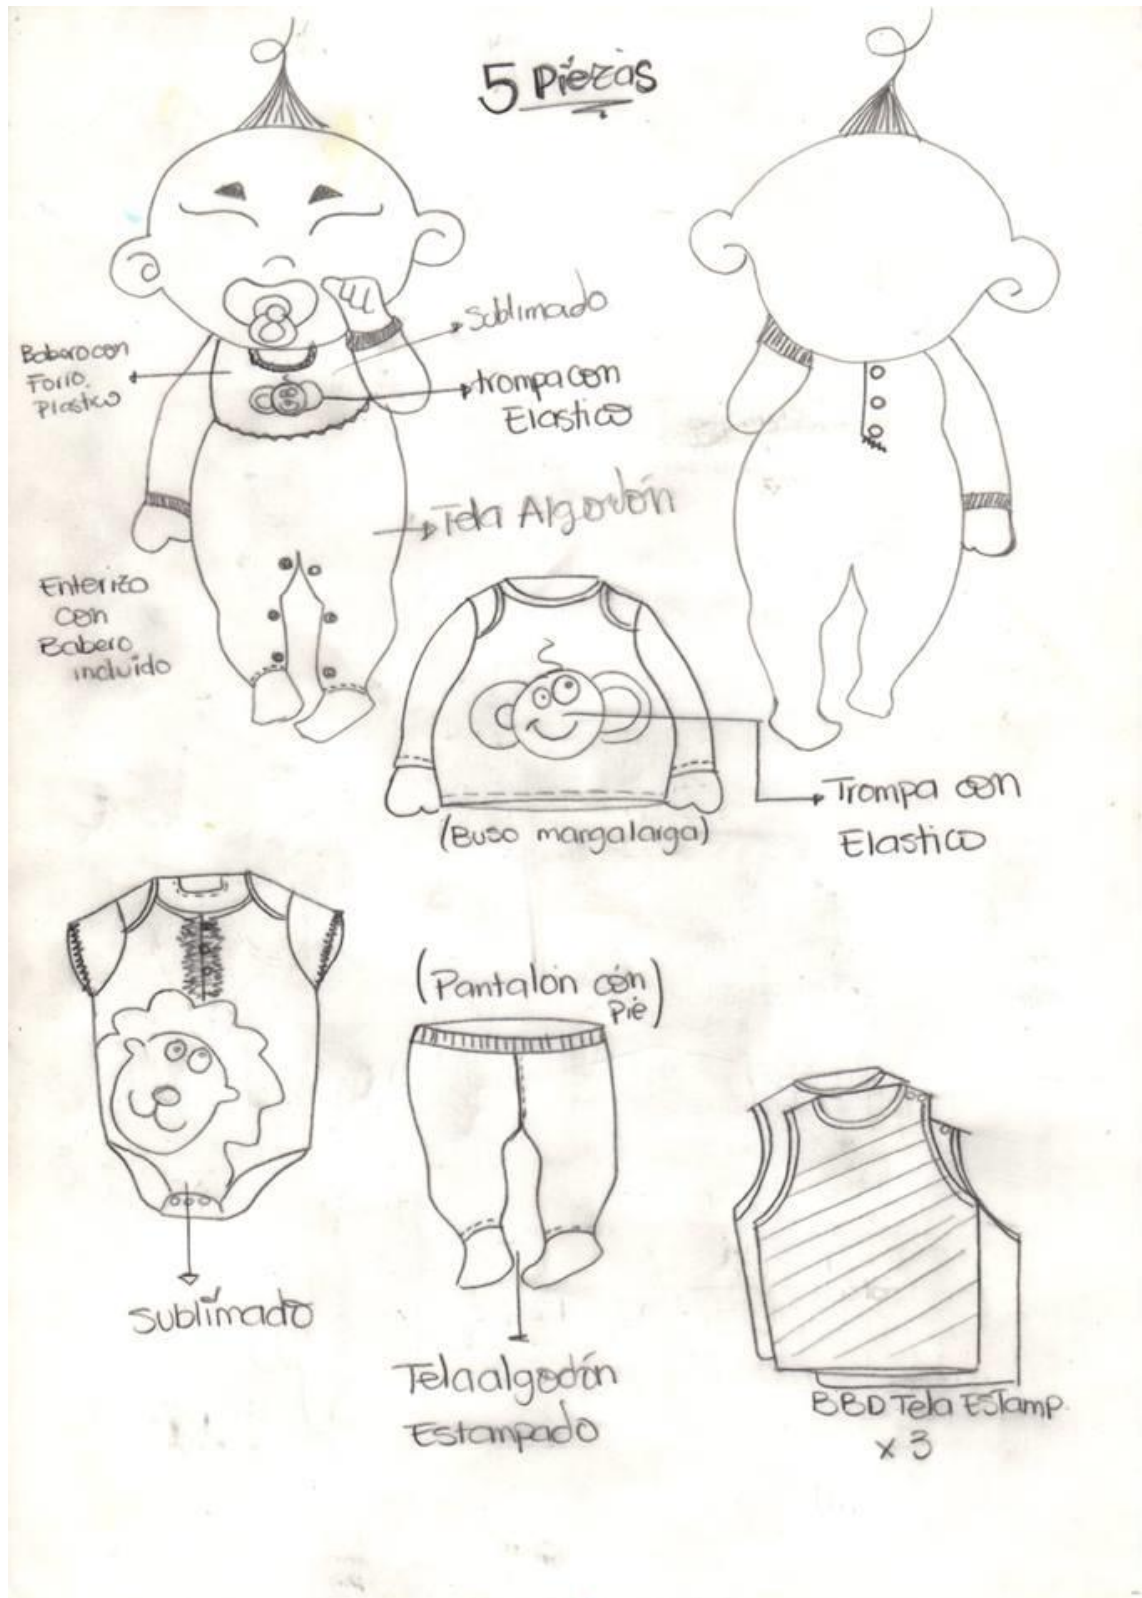 5 Piezas
Sublimado
Babero con
Forro.
Plastico
trompa con
Elastico
Tela Algodón
Enterizo
con
Babero
incluido
Trompa con
Elastico
(Buso mangalarga)
(Pantalón cón
Pie)
Sublimado
Tela algodón
Estampado
BBD Tela ESTamp.
x 3